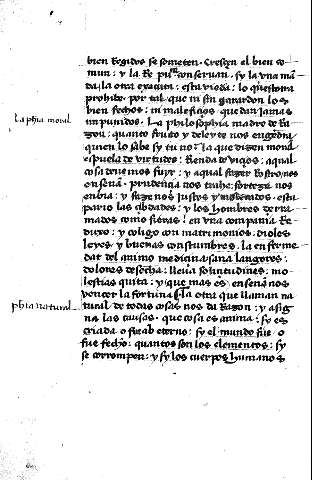 bien Regidos se someten. Cresçen el bien co
mun: y la Re pu^ca conseruan. sy la vna mã
da la otra executa: esta vieda: lo questotra
prohibe. por tal que ni sin galardon los
bien fechos: ni maleficios quedan jamas
la phia moral
inpunidos. La philosophia madre de Ra
zon: quanto fruto y deleyte nos engẽdra
quien lo sabe sy tu no? la que dizen moral
espuela de virtudes: Renda de viçios: a qual
cosa deuemos fuyr: y a qual fazer Rostro nos
enseña. prudençia nos trahe: fortaleza nos
enbia: y faze nos justos y moderados. esta
pario las çibdades: y los hombres derra
mados como fieras: en vna compania Re
duxo: y coligo con matrimonios: dioles
leyes y buenas constumbres. la enferme
dat del animo medicina: sana langores:
dolores desecha: lieua soliçitudines: mo
lestias quita: y que mas es enseña nos
vençer la fortuna. La otra que llaman na
phia natural
tural de todas cosas nos da Razon: y asig
na las causas. que cosa es anima: sy es
criada o fue ab eterno: sy el mundo fue o
fue fecho: quantos son los elementos: sy
se corrompen: y sy los cuerpos humanos